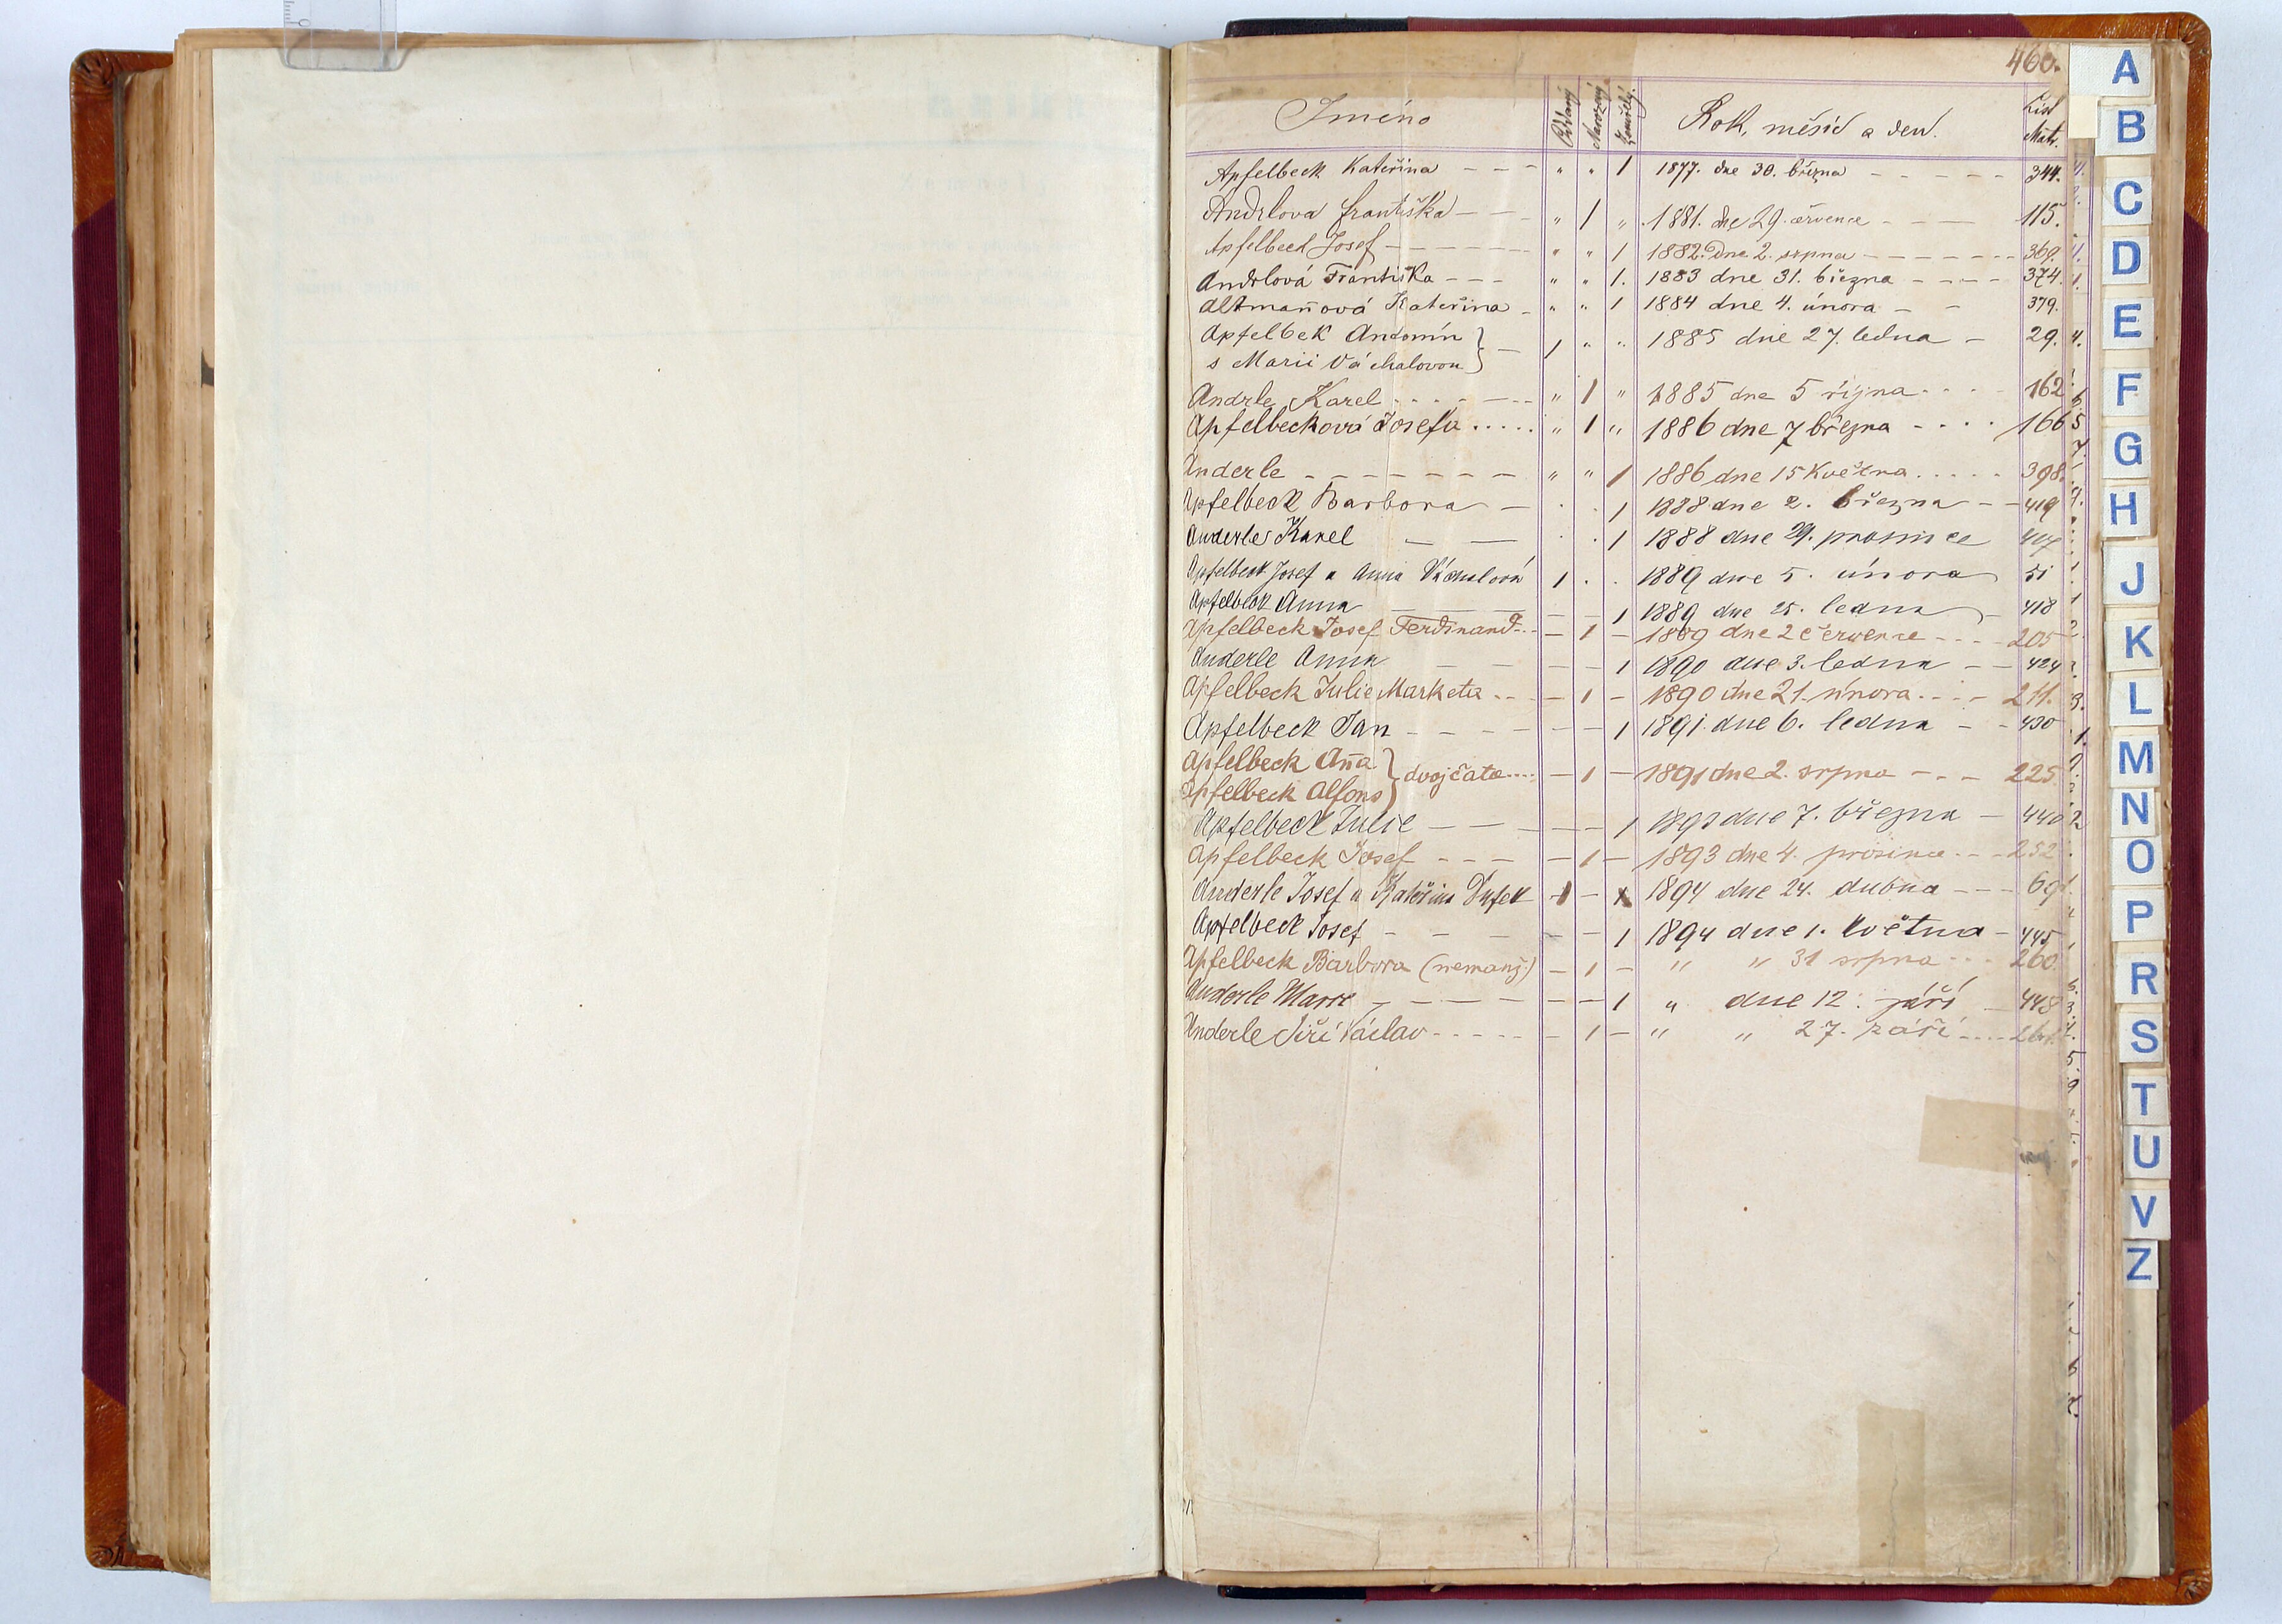 460.
Jméno Oddaný Narozený Zemřelý. Rok, měsíc a den. List Matr.
Apfelbeck Kateřina - - - " " 1 1877. dne 30. března - - - - - 344.
Andrlova Františka - - - " 1 " 1881. dne 29. července - - - 115.
Apfelbeck Josef - - - - - - " " 1 1882. Dne 2. srpna - - - - - - 369.
Andrlová Františka - - - " " 1. 1883 dne 31. března - - - - 374.
Altmaňová Kateřina - " " 1 1884 dne 4. února - - 379.
Apfelbek Antonín
s Marii Váchalovou } - 1 " " 1885 dne 27. ledna - 29.
Andrle Karel - - - - - - " 1 " 1885 dne 5 října - - - 162
Apfelbecková Josefa ..... " 1 " 1886 dne 7 března - - - - 166
Anderle - - - - - - - " " 1 1886 dne 15 Května ..... 398.
Apfelbeck Barbora - . . 1 1888 dne 2. března - - 419
Anderle Karel - - . . 1 1888 dne 29. prosince 407
Apfelbeck Josef a Anna Váchalová 1 . . 1889 dne 5. února 51
Apfelbeck Anna - - - - 1 1889 dne 25. ledna - 418
Apfelbeck Josef Ferdinand - - - 1 - 1889 dne 2 července - - - - 205
Anderle Anna - - - - 1 1890 dne 3. ledna - - 424
Apfelbeck Julie Marketa - - - 1 - 1890 dne 21. února - - - 211.
Apfelbeck Jan - - - - - - 1 1891. dne 6. ledna - - 430
Apfelbeck Aňa
Apfelbeck Alfons } dvojčata .... - 1 - 1891 dne 2. srpna - - - 225
Apfelbeck Julie - - - - - 1 1893 dne 7. března - 440
Apfelbeck Josef - - - - 1 - 1893 dne 4. prosince - - - 252
Anderle Josef a Kateřina Dufek 1 - 1894 dne 24. dubna - - - 69
Apfelbeck Josef - - - - - 1 1894 dne 1. května - 445
Apfelbeck Barbora (nemanž.) - 1 - " " 31 srpna - - - 260
Anderle Marie - - - - - - 1 " dne 12. září - 448
Anderle Jiří Václav - - - - - - 1 - " " 27. září .... 261.
A
B
C
D
E
F
G
H
J
K
L
M
N
O
P
R
S
T
U
V
Z